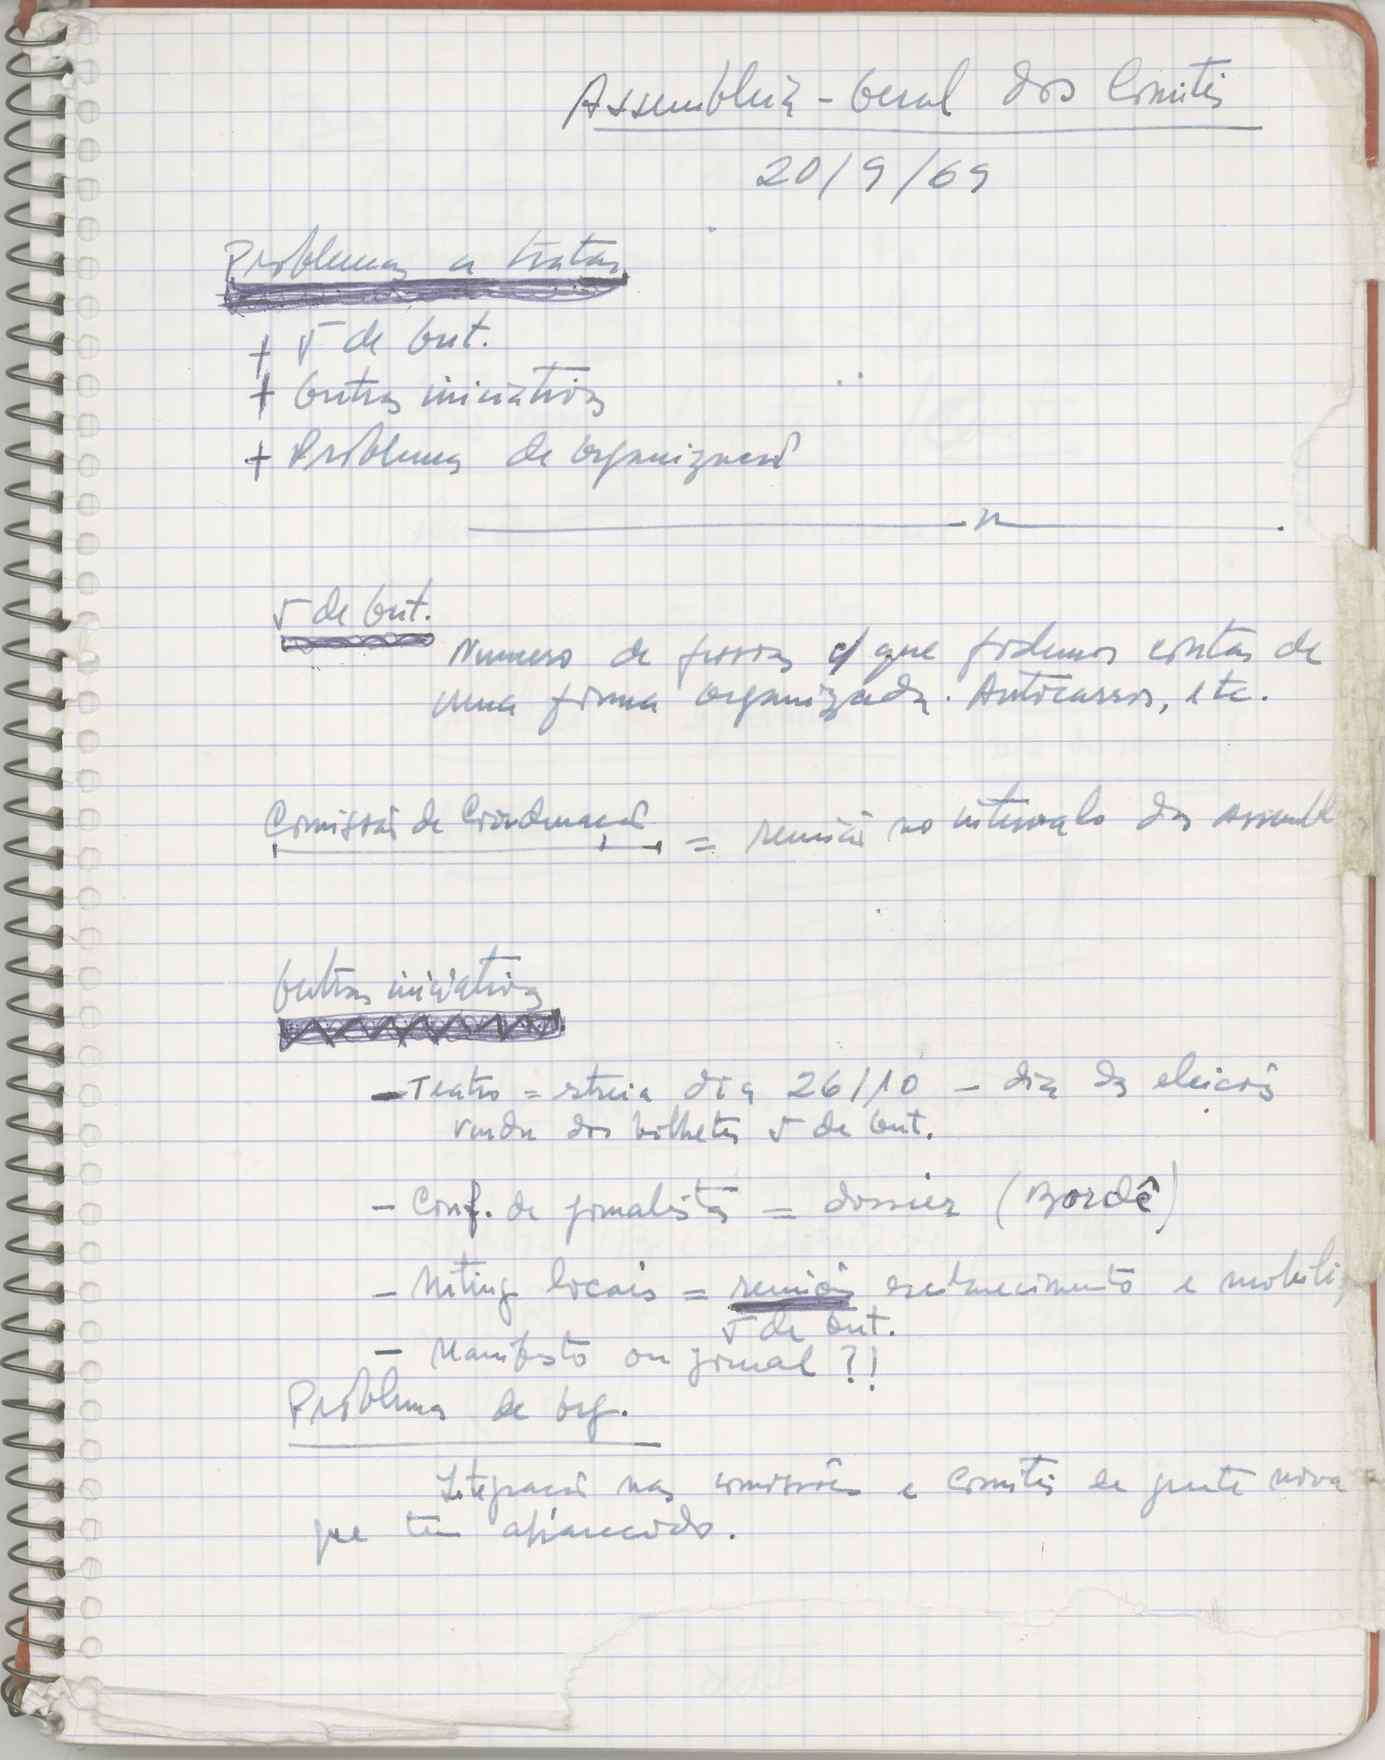 Assembleia-Geral dos Comités
20/9/69
Problemas a tratar
+ 5 de Out.
+ Outras iniciativas
+ Problemas de organização
5 de Out.
Numero de pessoas c/ que podemos contar de
uma forma organizada. Autocarros, etc.
Comissão de Coordenação = reunião no intervalo das assembl
Outras iniciativas
- Teatro = estreia dia 26/10 - dia das eleições
venda dos bilhetes 5 de Out.
- Conf. de jornalistas = dossier (Bordê)
- Miting locais = reuniões esclarecimento e mobiliz
5 de Out.
- Manifesto ou jornal ?!
Problemas de org.
Integração nas comissões e Comités de gente nova
que tem aparecido.